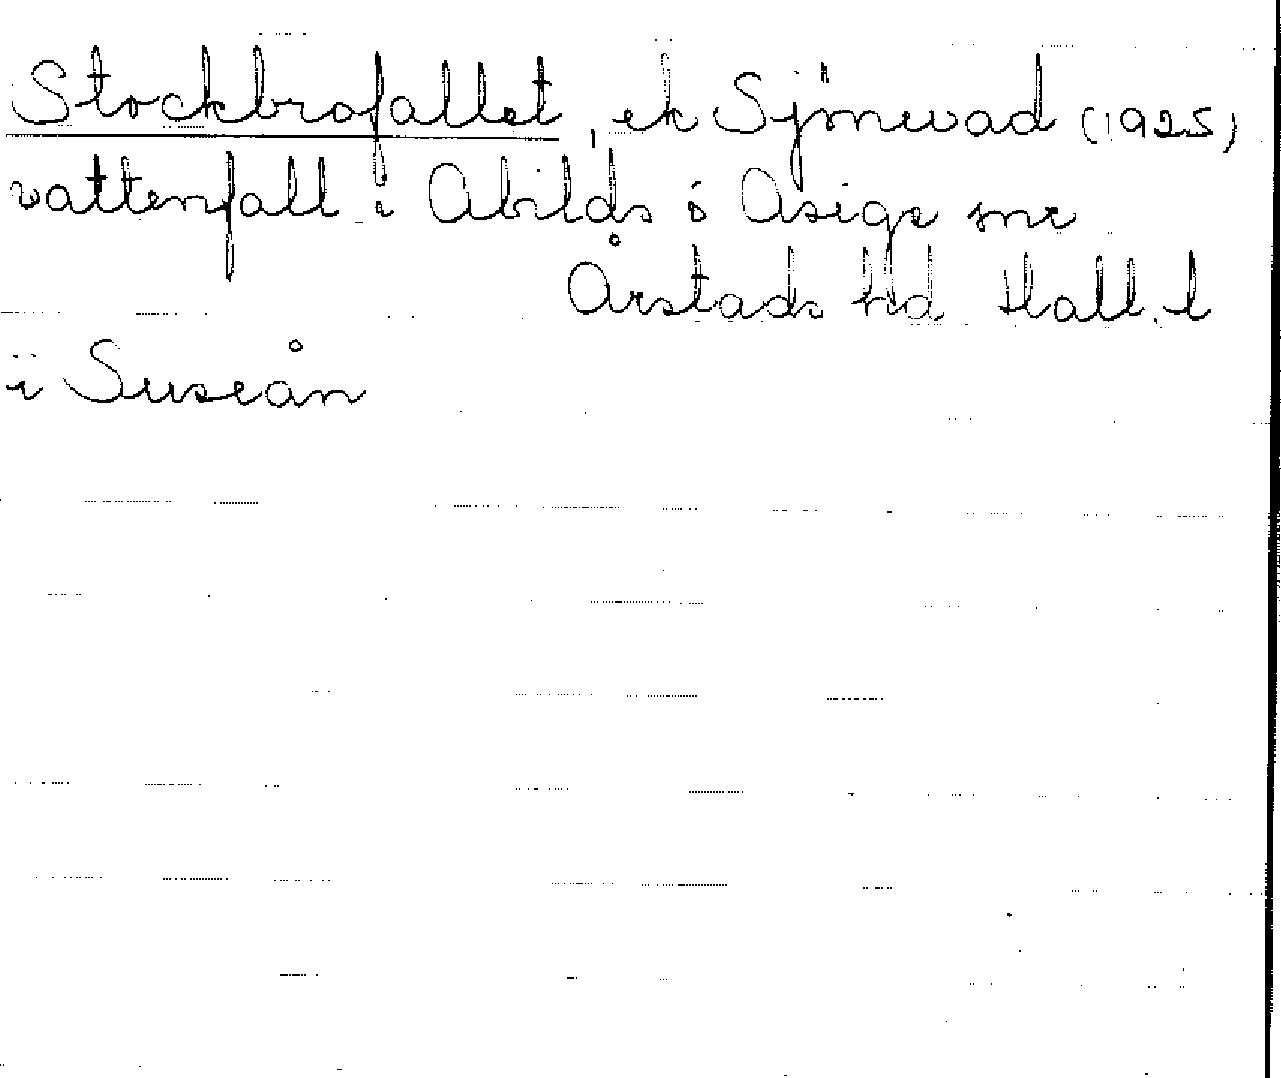 Stockbrofallet, ek Sjönevad (1925)
vattenfall i Abilds o Asige snr
Årstads hd Hall. l
i Suseån